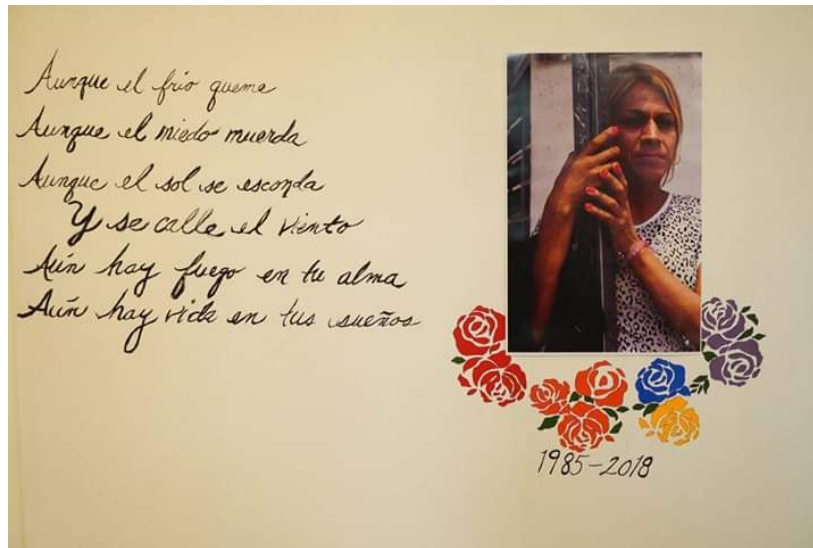 Aunque el frio queme
Aunque el miedo muerda
Aunque el sol se esconda
Y se calle el viento
Aún hay fuego en tu alma
Aún hay vida en tus sueños
1985-2018